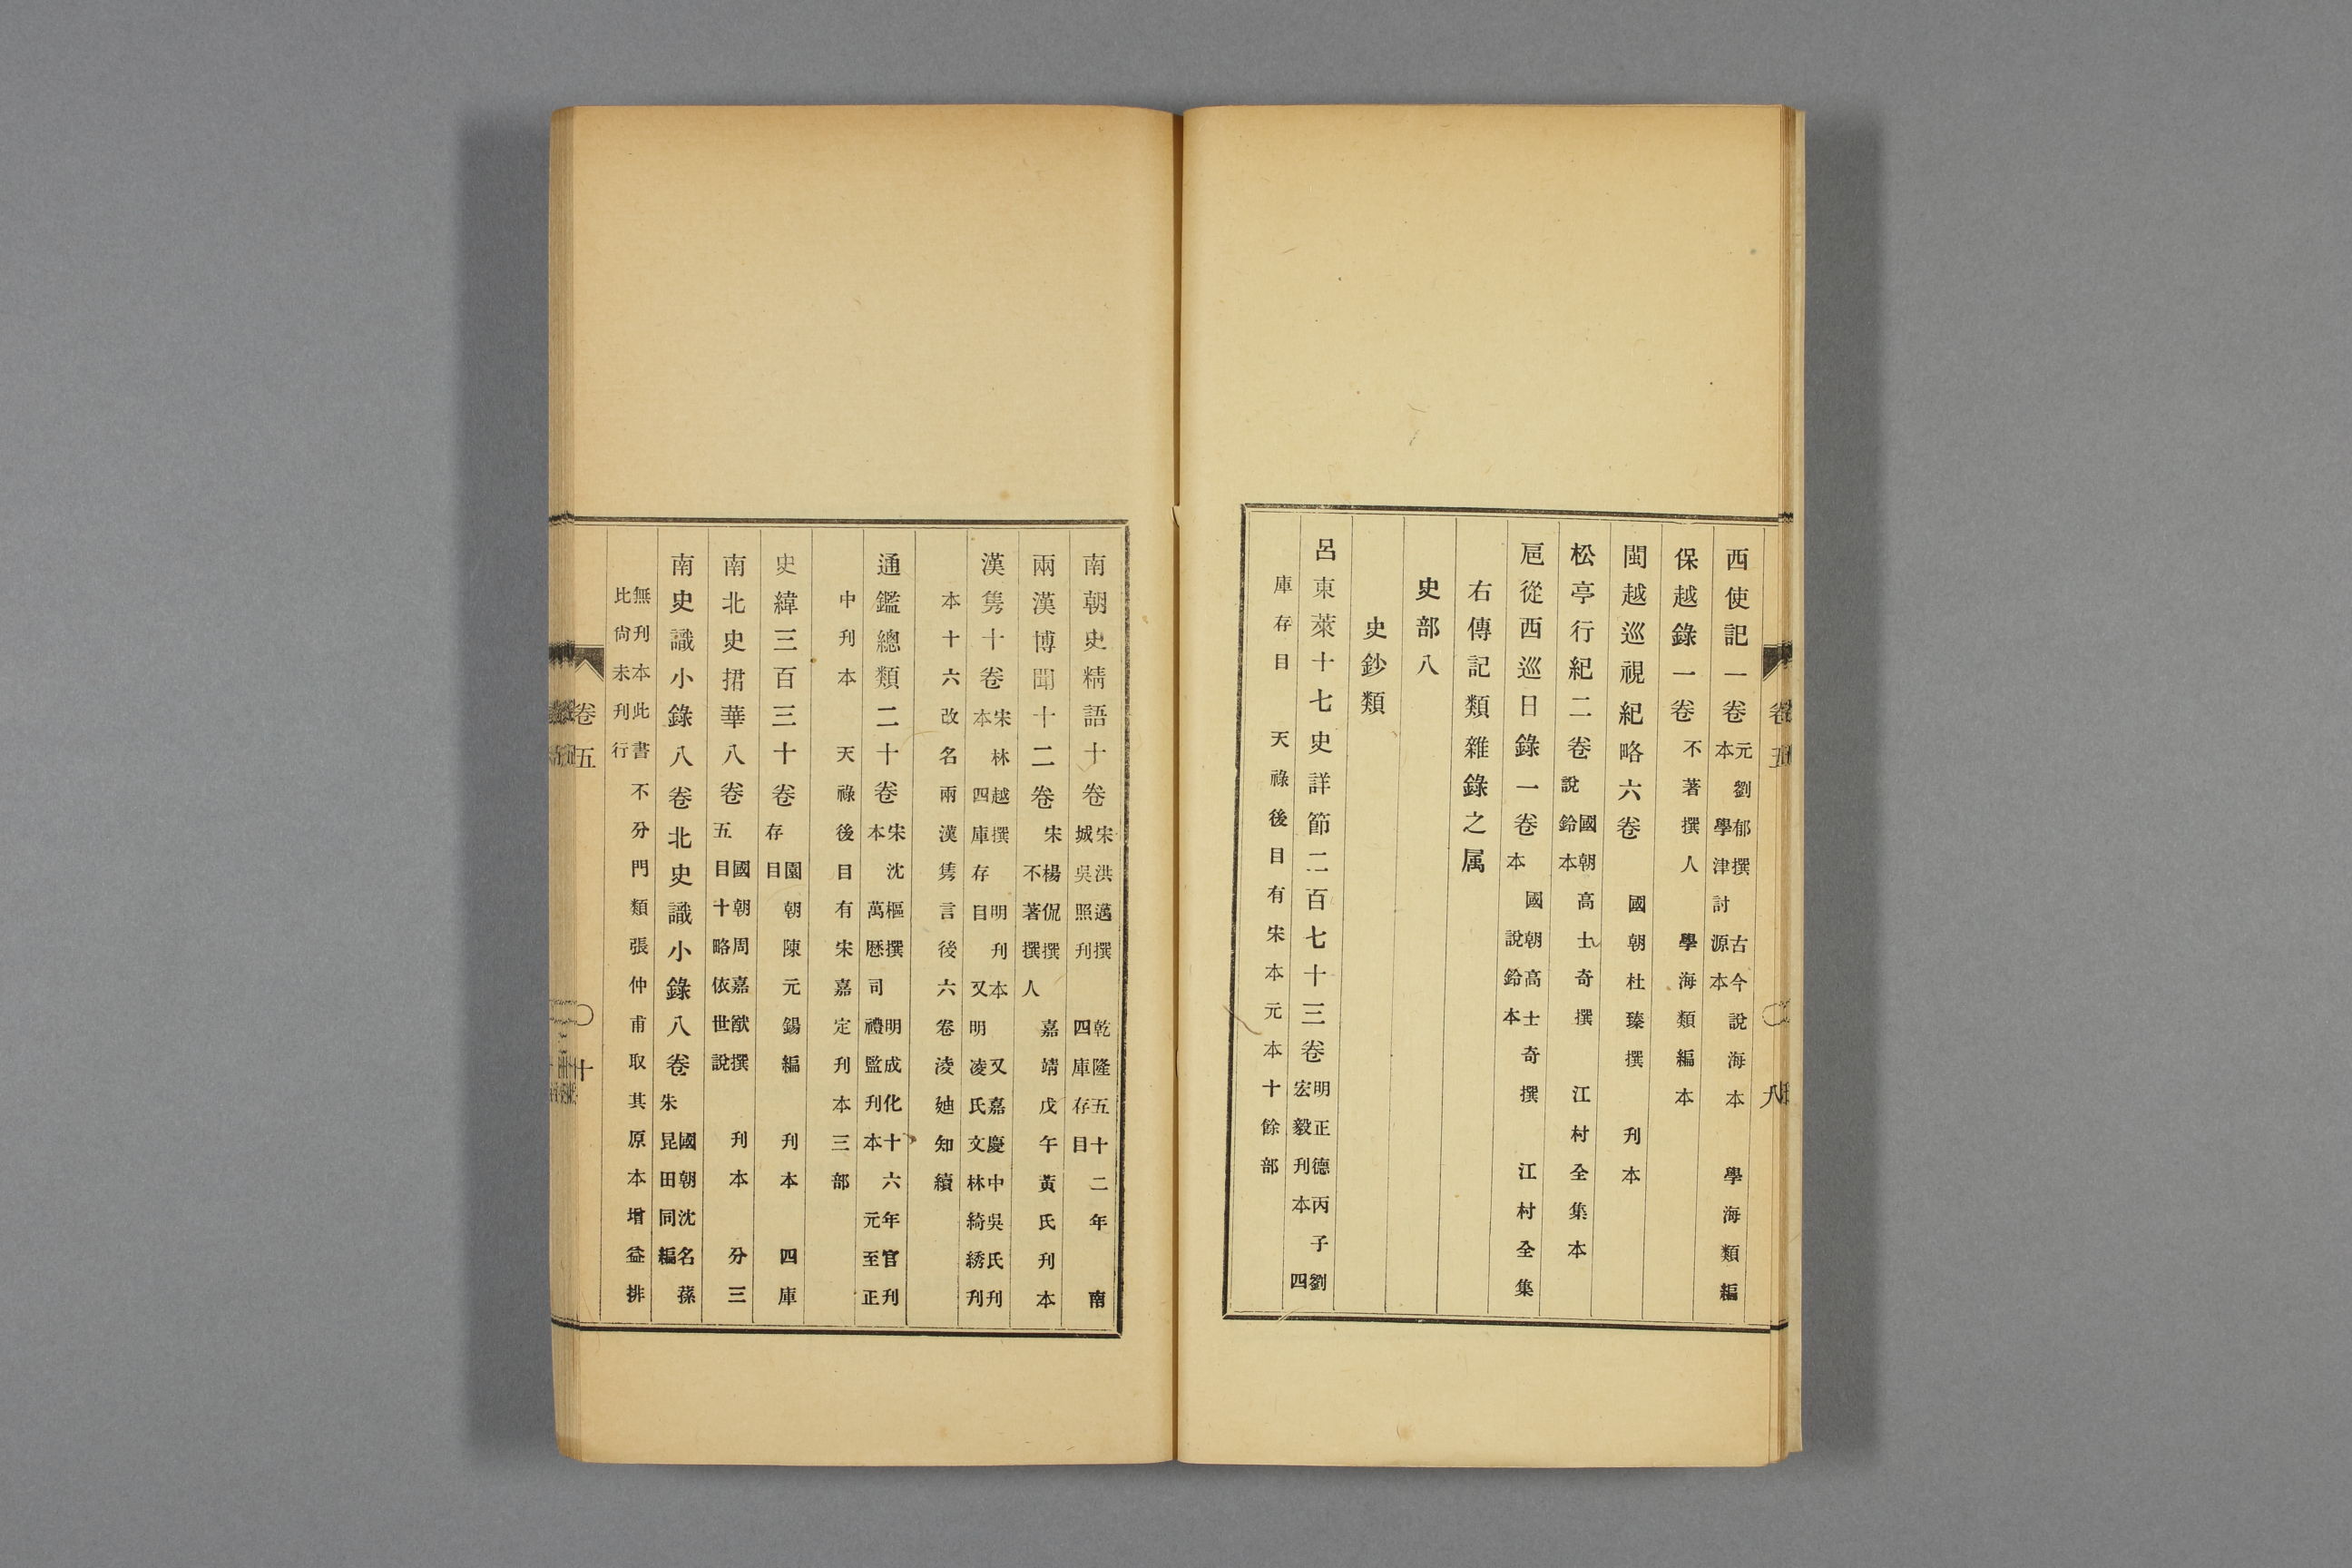 卷五 八
西使記一卷元劉郁撰 古今說海本 學海類編
本 學津討源本
保越錄一卷 不著撰人 學海類編本
閩越巡視紀略六卷 國朝杜臻撰 刊本
松亭行紀二卷 國朝高士奇撰 江村全集本
說鈴本
扈從西巡日錄一卷 國朝高士奇撰 江村全集
本 說鈴本
右傳記類雜錄之属
史部八
史鈔類
呂東萊十七史詳節二百七十三卷明正德丙子劉
宏毅刊本 四
庫存目 天祿後目有宋本元本十餘部
南朝史精語十卷宋洪邁撰 乾隆五十二年 南
城吳照刊 四庫存目
兩漢博聞十二卷 宋楊侃撰 嘉靖戊午黃氏刊本
不著撰人
漢雋十卷宋林越撰 明刊本 又嘉慶中吳氏刊
本 四庫存目 又明凌氏文林綺綉刊
本十六改名兩漢雋言後六卷淩迪知續
通鑑總類二十卷宋沈樞撰 明成化十六年官刊
本 萬曆司禮監刊本 元至正
中刊本 天祿後目有宋嘉定刊本三部
史緯三百三十卷 園朝陳元錫編 刊本 四庫
存目
南北史捃華八卷 國朝周嘉猷撰 刊本 分三
五目十略依世說
南史識小錄八卷北史識小錄八卷 國朝沈名蓀
朱昆田同編
無刊本此書不分門類張仲甫取其原本增益排
比尙未刊行
卷五 十